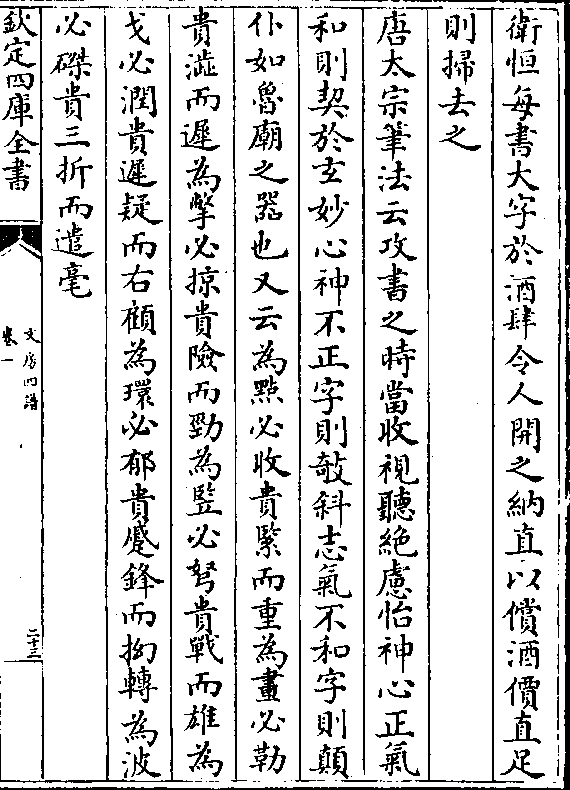 衛恒每書大字於酒肆令人開之納直以償酒價直足
則掃去之
唐太宗筆法云攻書之時當收視聽絕慮怡神心正氣
和則契於玄妙心神不正字則敧斜志氣不和字則顛
仆如魯廟之器也又云為點必收貴緊而重為畫必勒
貴澁而遲為撆必掠貴險而勁為竪必弩貴戰而雄為
戈必潤貴遲疑而右顧為環必郁貴蹙鋒而拗轉為波
必磔貴三折而遣毫
欽定四庫全書
文房四譜
卷一
二十三